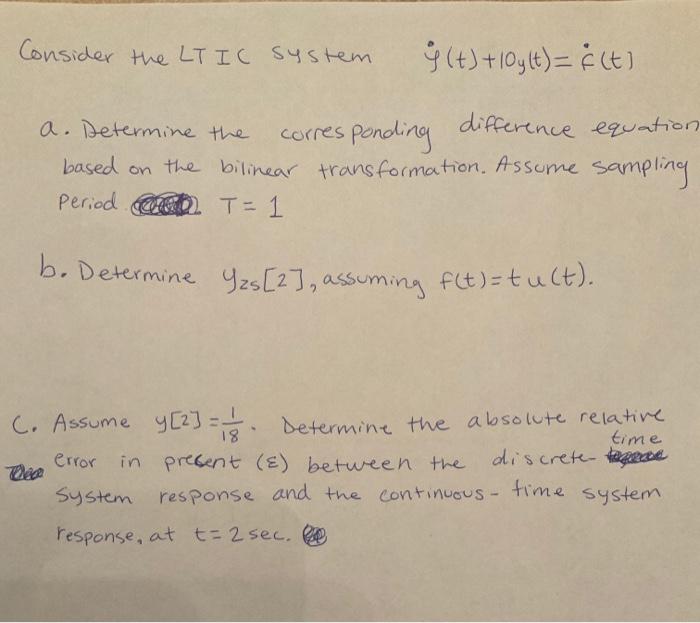 Consider the LTIC system ẏ(t)+10y(t)=ḟ(t)
a. Determine the corresponding difference equation
based on the bilinear transformation. Assume sampling
Period T = 1
b. Determine yzs[2], assuming f(t)=tu(t).
C. Assume y[2]=1/18. Determine the absolute relative
error in precent (ε) between the discrete-time
system response and the continuous-time system
response, at t=2 sec.